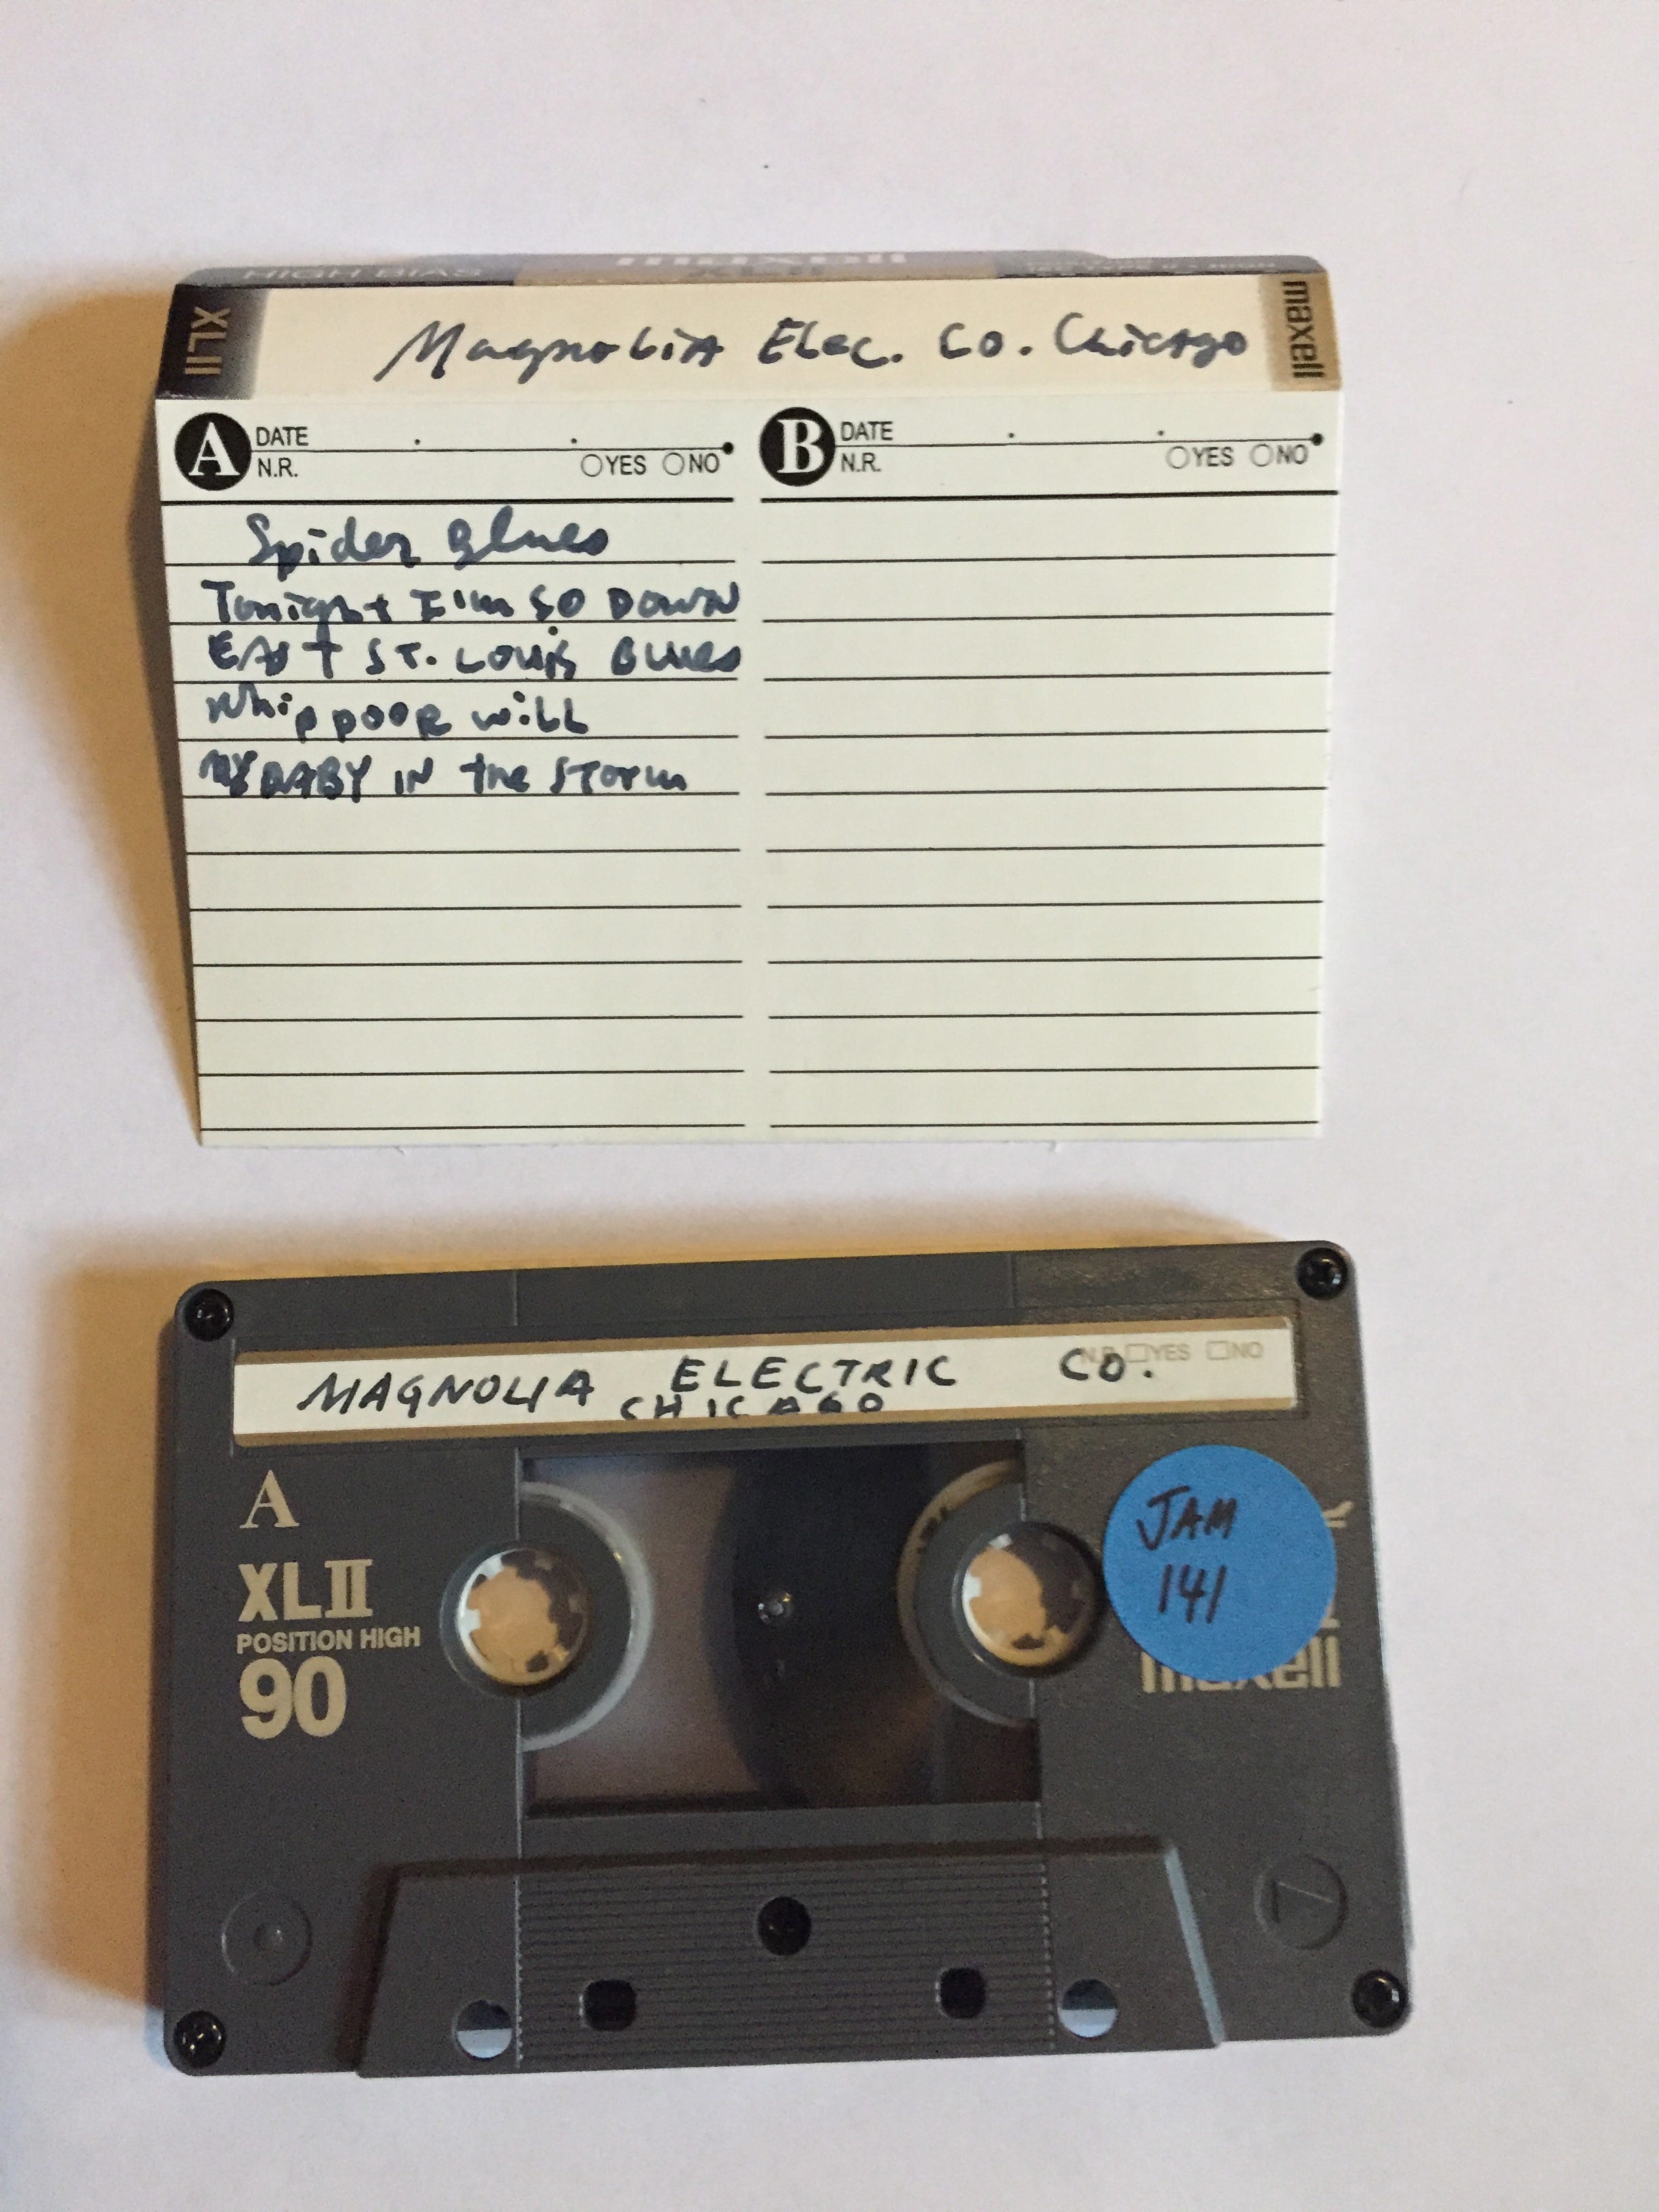 HIGH BIAS maxell
XLII
XLII Magnolia Elec. Co. Chicago maxell
A DATE . .
N.R. YES NO
B DATE . .
N.R. YES NO
Spider Blues
Tonight I'm SO DOWN
EAST ST. LOUIS BLUES
Whippoor will
MY BABY IN the STORM
N.R. YES NO
MAGNOLIA ELECTRIC CO.
CHICAGO
A
XLII
POSITION HIGH
90
JAM
141
maxell